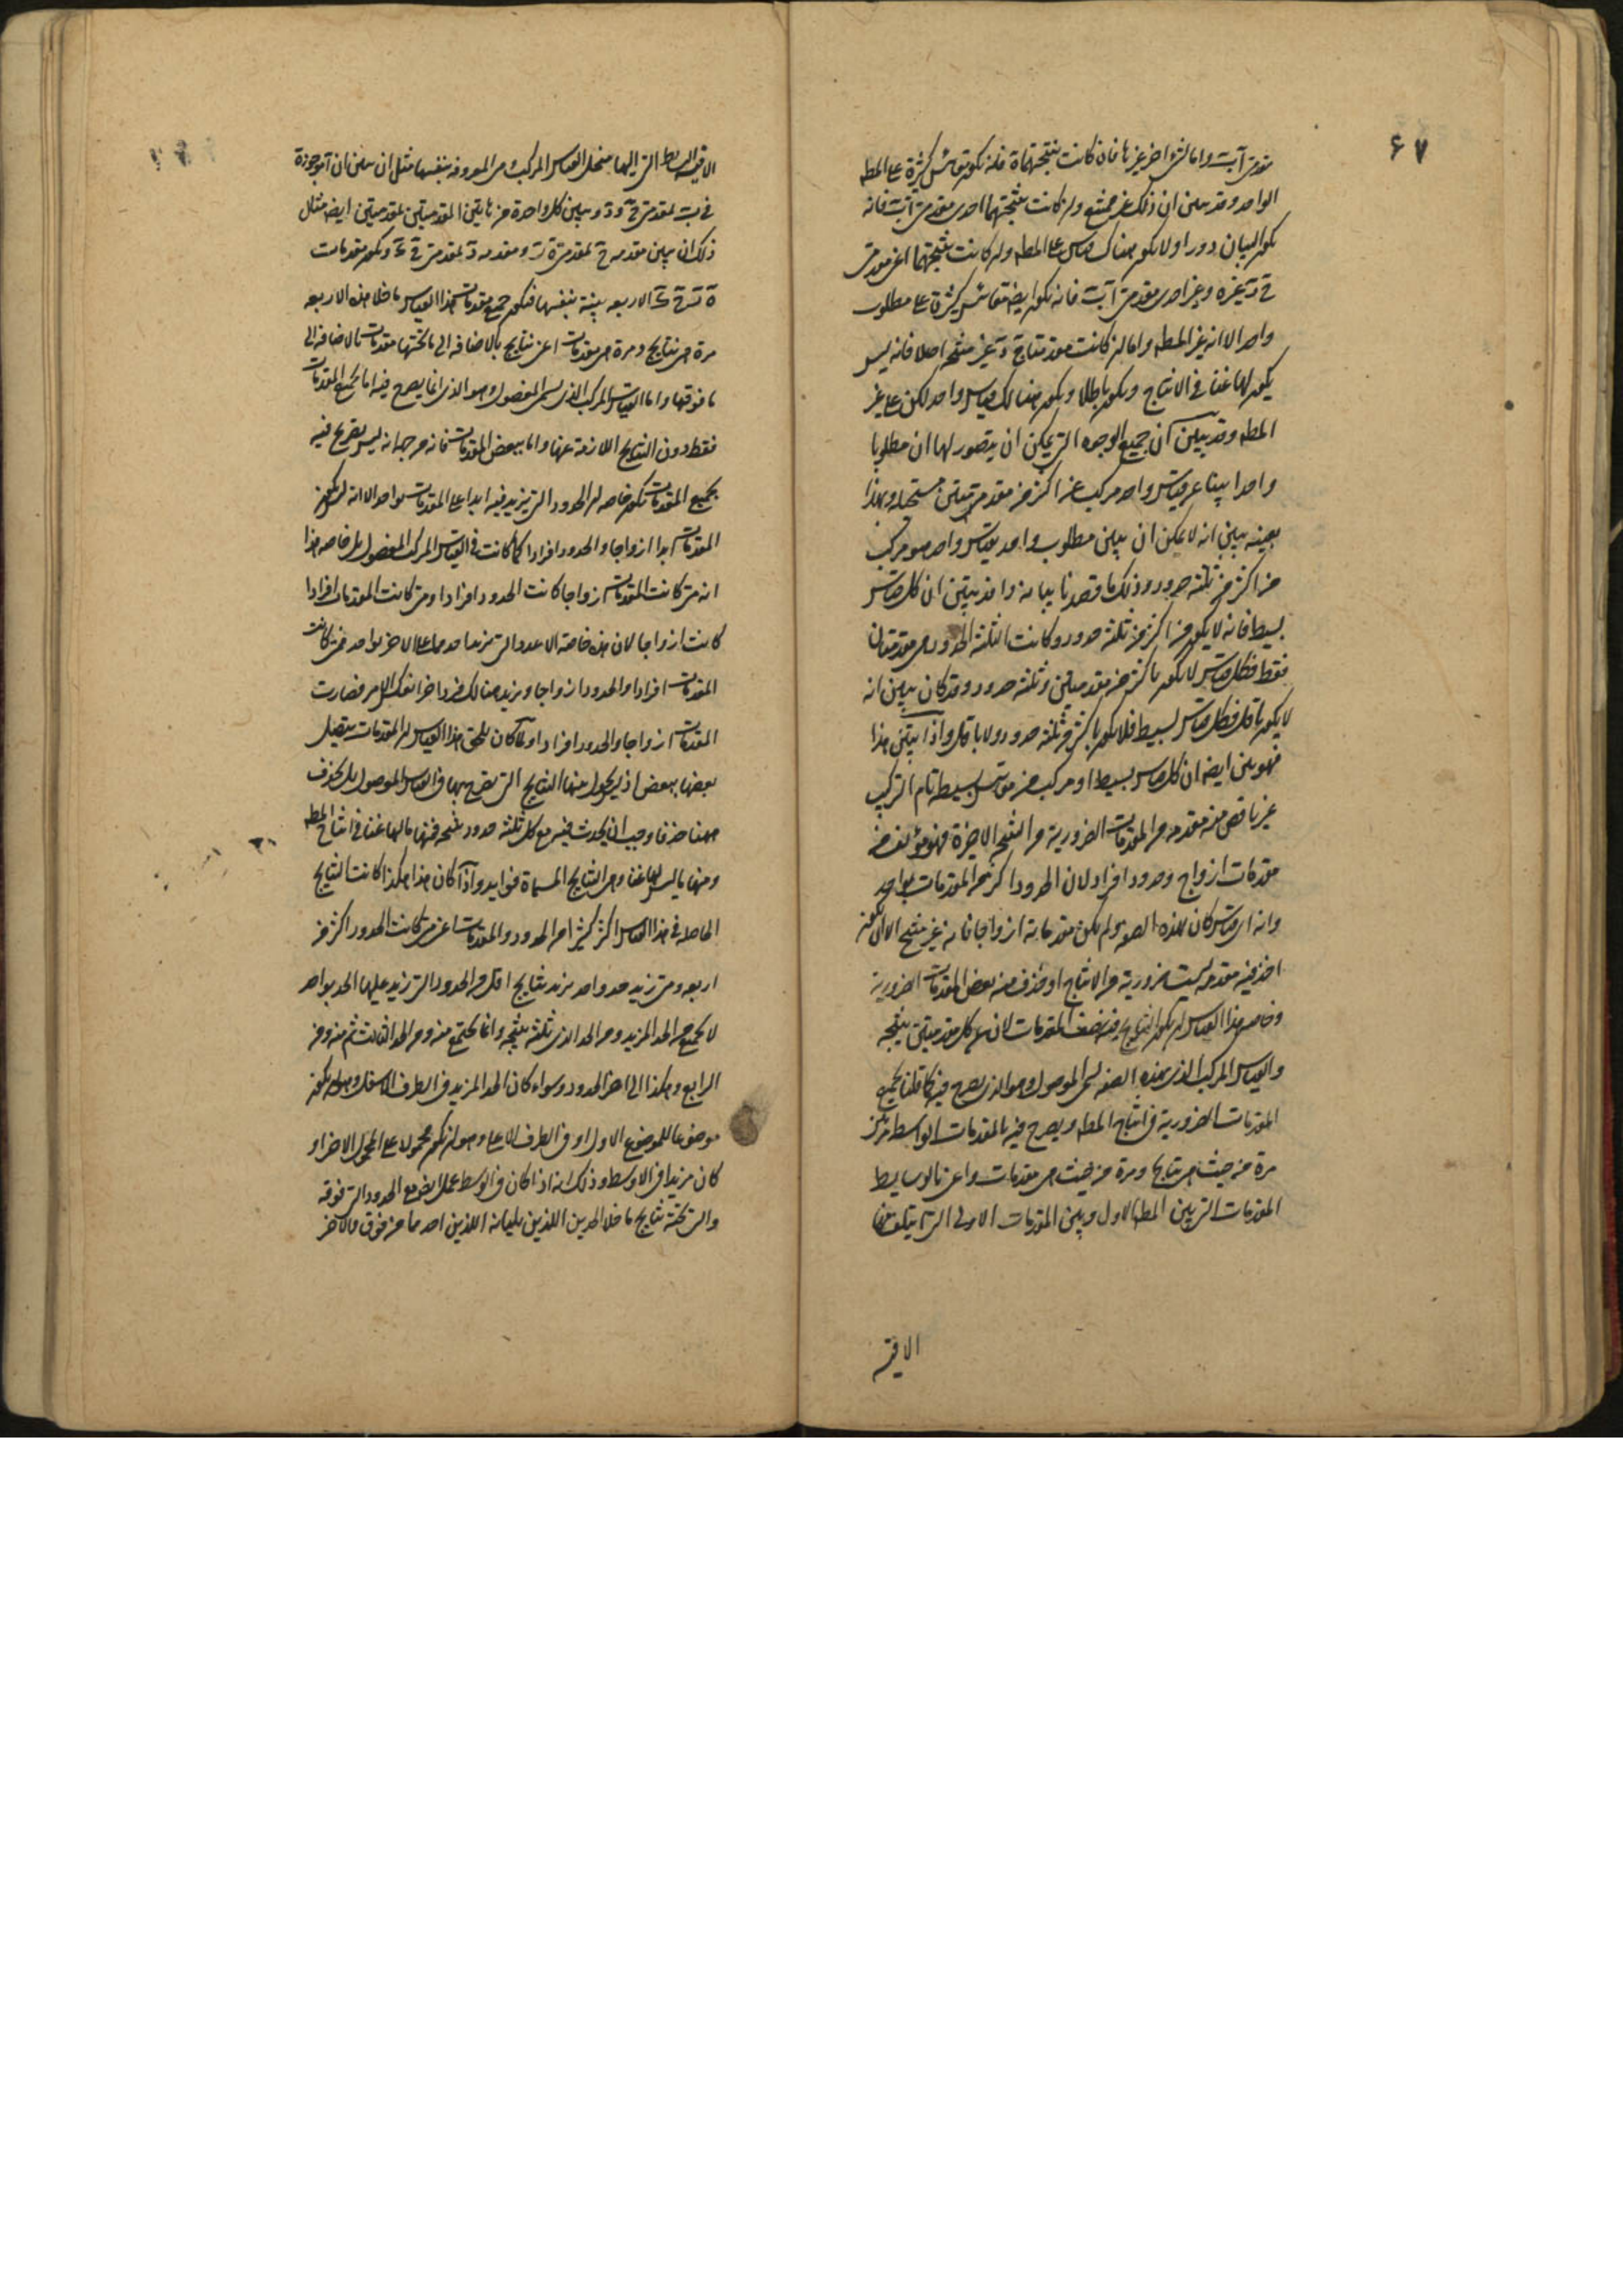 ۶۷
مقدمتى آ ب واما لشئ اخر غيرها فان كانت نتيجتهما ة فانه تكون مقاييس كثيرة على المط
الواحد وقد تبين ان ذلك غير ممتنع وان كانت نتيجتهما احدى مقدمتى آ ب فانه
يكون البيان دورا ولا يكون هناك قياس على المط وان كانت نتيجتهما اعنى مقدمتى
ج د غير ة وغير احدى مقدمتى آ ب فانه تكون ايضا مقاييس كثيرة على مطلوب
واحد الا انه غير المط واما ان كانت مقدمتا ج د غير منتجة اصلا فانه ليس
يكون لها غنا فى الانتاج ويكون باطلا ويكون هنالك قياس واحد لكن على غير
المط وقد يتبين ان جميع الوجوه التى يمكن ان يتصور لها ان مطلوبا
واحدا يبينا عن قياس واحد مركب من اكثر من مقدمتين مستحيلة وبهذا
بعينه يتبين انه لا يمكن ان يبين مطلوب واحد بقياس واحد هو مركب
من اكثر من ثلثة حدود وذلك ما قصدنا بيانه واذ تبين ان كل قياس
بسيط فانه لا يكون من اكثر من ثلثة حدود وكانت الثلثة الحدود هى مقدمتان
فقط فكل قياس لا يكون باكثر من مقدمتين وثلثة حدود وقد كان تبين انه
لا يكون باقل فكل قياس بسيط فلا يكون باكثر من ثلثة حدود ولا باقل واذا تبين هذا
فهو بين ايضا ان كل قياس بسيط او مركب من مقاييس بسيطة تام التركيب
غير ناقص منه مقدمة من المقدمات الضرورية من النتيجة الاخيرة فهو مؤلف من
مقدمات ازواج وحدود افراد لان الحدود اكثر من المقدمات بواحد
وانه اى قياس كان بهذه الصفة ولم يكن مقدماته ازواجا فانه غير منتج الا ان يكون
اخذ فيه مقدمة ليست ضرورية فى الانتاج او حذف منه بعض المقدمات الضرورية
وخاصة هذا القياس ان يكون النتايج فيه نصف المقدمات لان عن كل مقدمتين نتيجة
والقياس المركب الذى بهذه الصفة يسمى الموصول وهو الذى يصرح فيه كما قلنا بجميع
المقدمات الضرورية فى انتاج المط ويصرح فيه بالمقدمات الواسط مرتين
مرة من حيث هى نتايج ومرة من حيث هى مقدمات واعنى بالوسايط
المقدمات التى بين المط الاول وبين المقدمات الاولى التى يتلف منها
الاقيسة
الاقيسة البسايط التى اليها ينحل القياس المركب وهى المعروفة بنفسها مثل ان يبين ان آ موجودة
فى ب بمقدمتى ج آ و د ويبين كل واحدة من هاتين المقدمتين بمقدمتين ايضا مثال
ذلك ان يبين مقدمة ج بمقدمتى ة ز ومقدمة د بمقدمتى ح ط وتكون مقدمات
ة ز ح ط الاربعة بينة بنفسها فتكون جميع مقدمات هذا القياس ما خلا هذه الاربعة
مرة هى نتايج ومرة هى مقدمات اعنى نتايج بالاضافة الى ما تحتها مقدمات بالاضافة الى
ما فوقها واما القياس المركب الذى يسمى المفصول وهو الذى انما يصرح فيه اما بجميع المقدمات
فقط دون النتايج اللازمة عنها واما ببعض المقدمات فانه من جهة انه ليس يصرح فيه
بجميع المقدمات تكون خاصة ان الحدود التى تزيد فيه ابدا على المقدمات بواحد الا انه ليس تكون
المقدمات ابدا ازواجا والحدود افرادا كما كانت فى القياس المركب المفصول بل خاصة هذا
انه متى كانت المقدمات ازواجا كانت الحدود افرادا ومتى كانت المقدمات افرادا
كانت ازواجا لان هذه خاصة الاعداد التى يزيد احدهما على الاخر بواحد فمتى كانت
المقدمات افرادا والحدود ازواجا وزيد هنالك فرد اخر انعكس الامر فصارت
المقدمات ازواجا والحدود افرادا ولما كان يلحق هذا القياس ان المقدمات يتصل
بعضها ببعض اذ ليس يحول بينها النتايج التى يصرح بها فى القياس الموصول بل تحذف
ههنا حذفا وجب ان يحدث فيه مع كل ثلثة حدود نتيجة فمنها ما لها غنا فى انتاج المط
ومنها ما ليس لها غنا وهى النتايج المسماة فوايد واذا كان هذا هكذا كانت النتايج
الحاصلة فى هذا القياس اكثر كثيرا من الحدود والمقدمات اعنى متى كانت الحدود اكثر من
اربعة ومتى زيد حد واحد يزيد نتايج اقل من الحدود التى زيد عليها الحد بواحد
لا يجتمع من الحد المزيد ومن الحد الذى ثلثة نتيجة وانما يجتمع منه ومن الحد الثالث ثم منه ومن
الرابع وهكذا الى اخر الحدود وسواء كان الحد المزيد فى الطرف الاسفل وهو ان يكون
موضوعا للموضوع الاول او فى الطرف الاعلى وهو ان يكون محمولا على المحمول الاخير او
كان مزيدا فى الاوسط وذلك انه اذا كان فى الوسط عمل ايضا مع الحدود التى فوقه
والتى تحته نتايج ما خلا الحدين اللذين يليانه اللذين احدهما من فوق والاخر